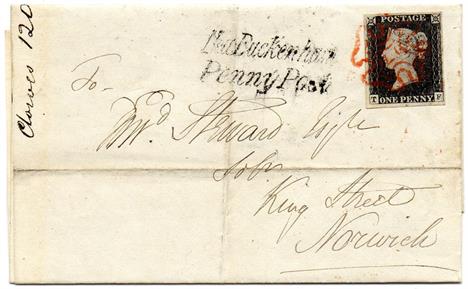 Clowes 120
New Buckenham
Penny Post
POSTAGE
T ONE PENNY F
To-
Steward Esqre
Solr
King Street
Norwich